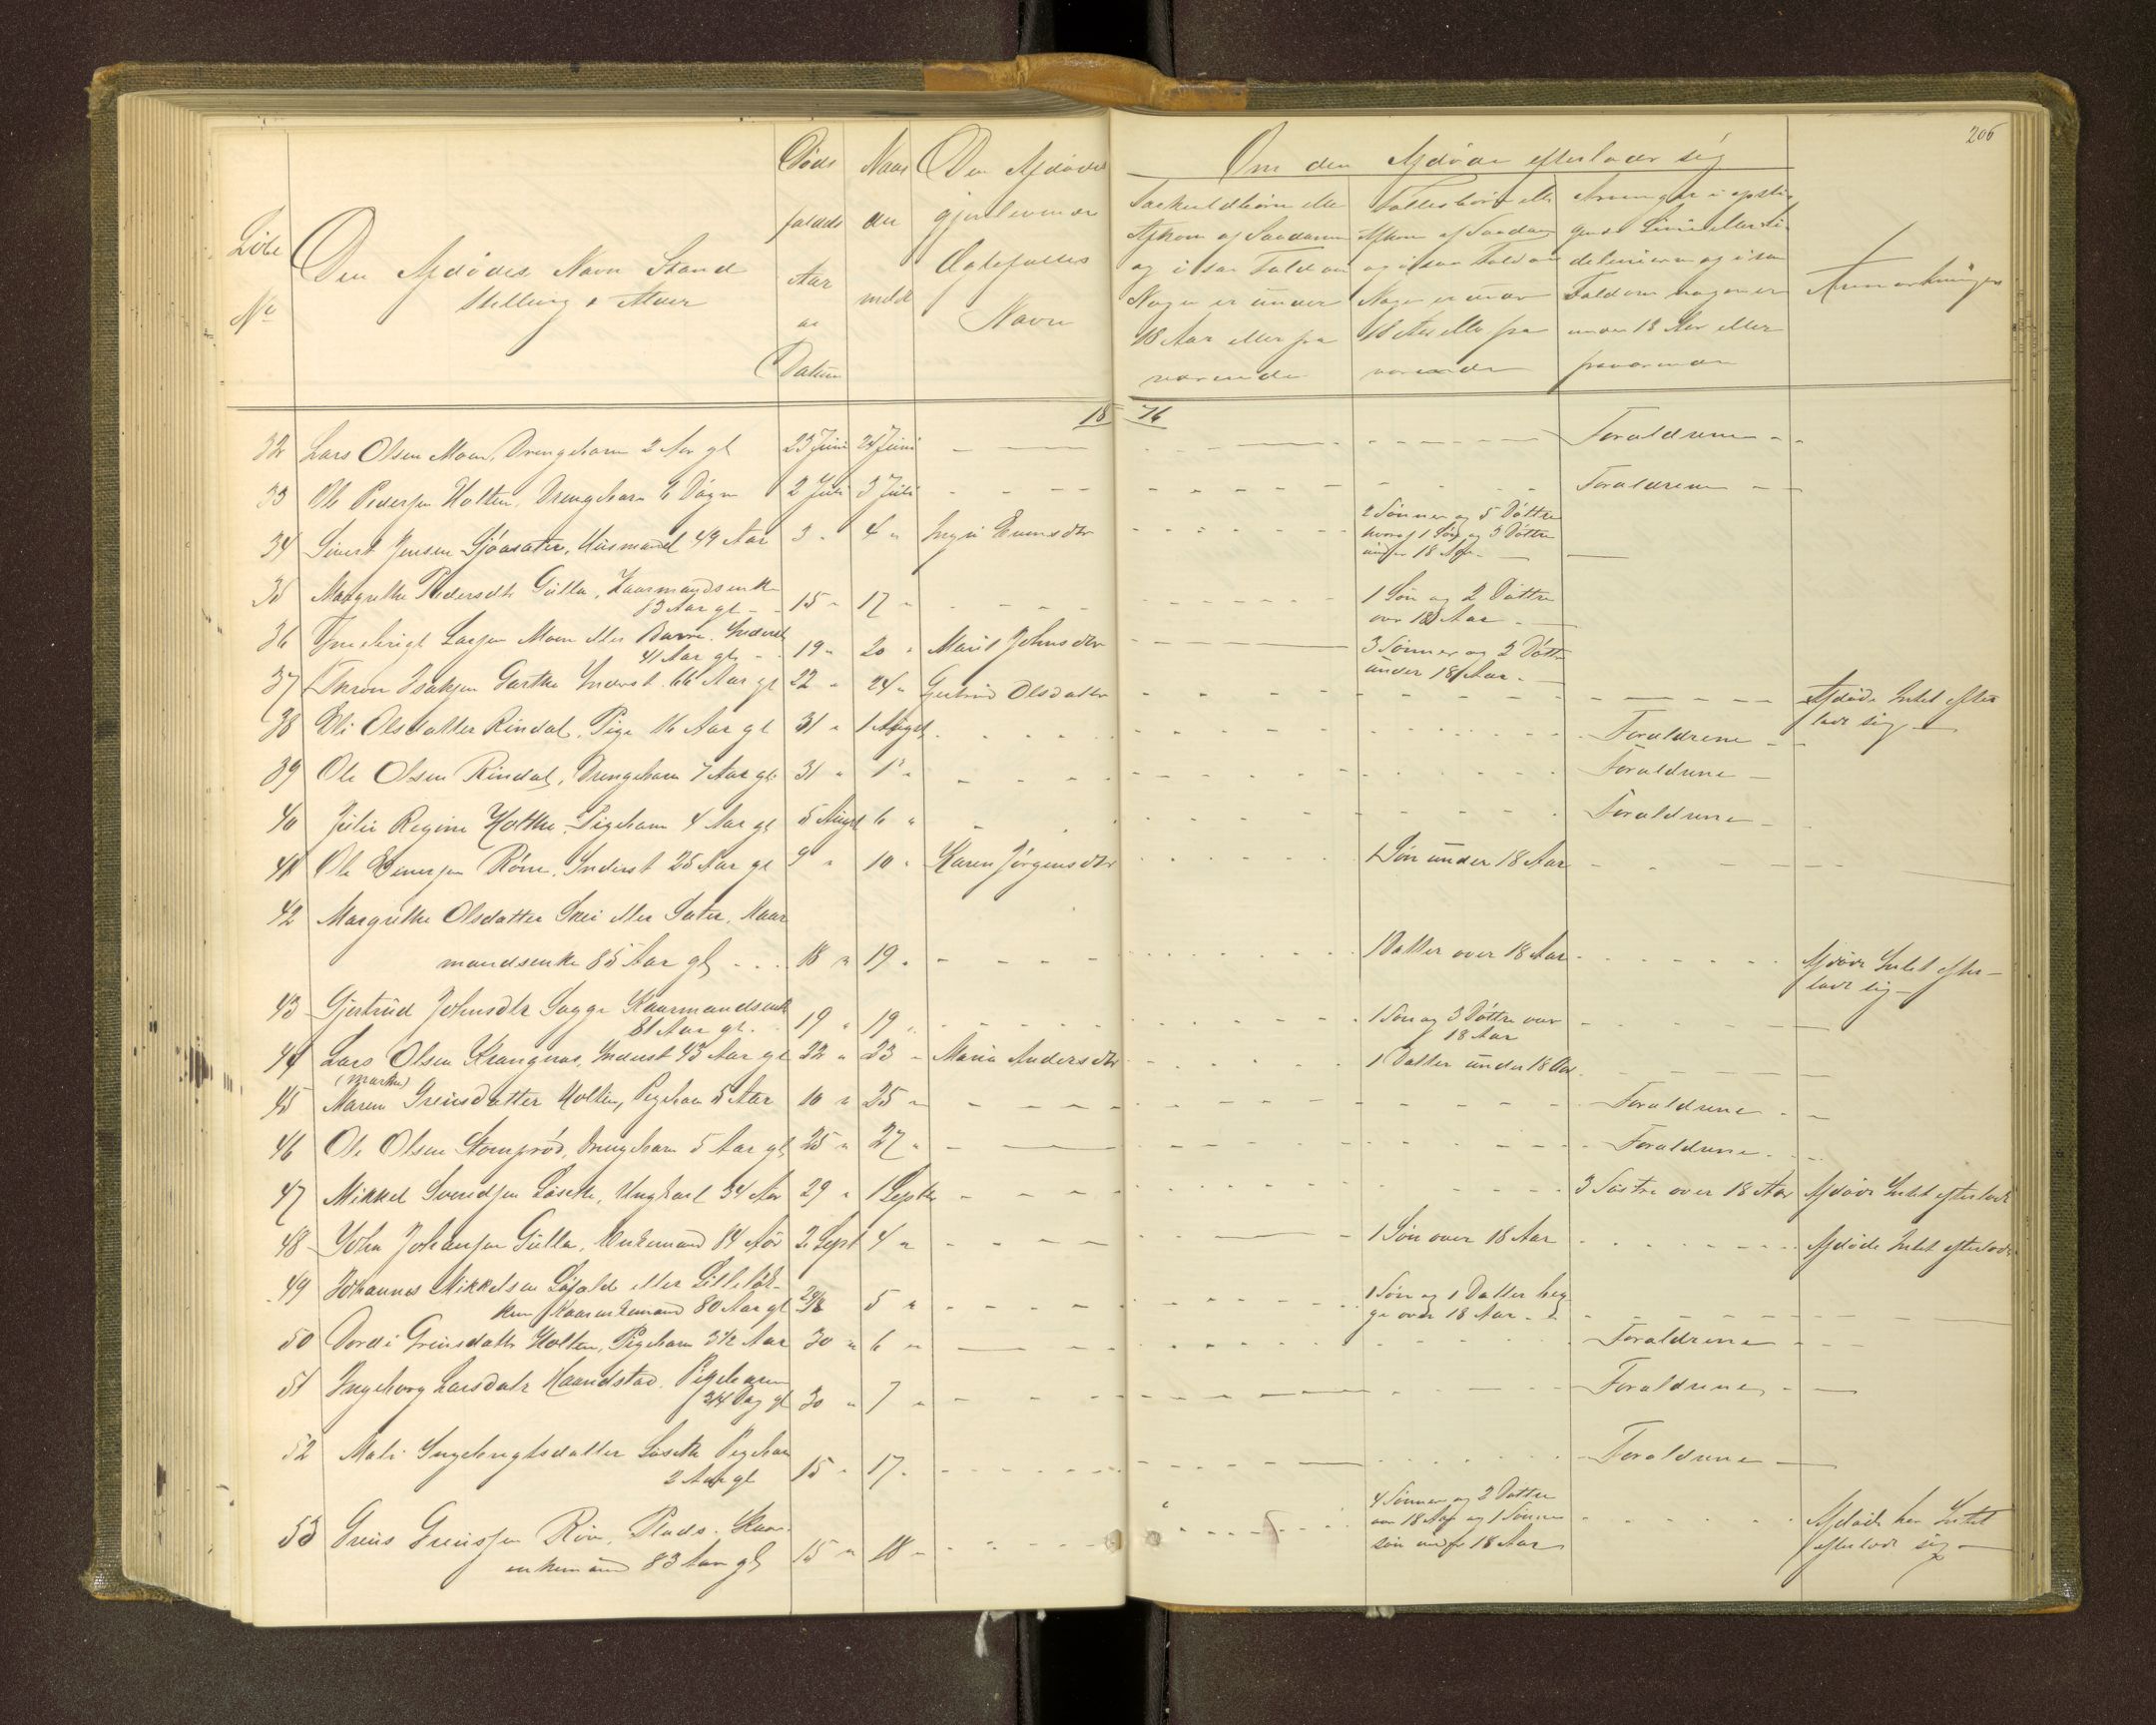 206
Löbe
No
Den Afdödes Navn Stand
Stilling & Alder
Döds
faldets
Aar
og
Datum
Naar
der
meldt
Den Afdödes
gjenlevende
Ægtefælles
Navn
Om den Afdöde efterlader sig
Særkuldbörn eller
Afkom af Saadanne
og i saa Fald om
Nogen er under
18 Aar eller fra
værende
Fællesbörn eller
Afkom af Saadan
og i saa Fald om
Nogen er under
18 Aar eller fra
værende
Arvinger i opsti-
gende Linie eller Si-
delinierne og i saa
Fald om nogen er
under 18 Aar eller
fraværende
Anmærkninger
18 76
32 Lars Olsen Moen, Drengebarn 2 Aar gl 23 Juni 24 Juni Forældrene
33 Ole Pedersen Holten, Drengebarn 6 Dögn 2 Juli 3 Juli Forældrene
34 Sivert Jensen Sjöasæter, Husmand 49 Aar 3 " 4 " Ingri Evensdtr 2 Sönner og 5 Döttre
hvoraf 1 Sön og 3 Döttre
under 18 Aar
35 Margrethe Pedersdtr Gulla, Kaarmandsenke
73 Aar gl - 15 " 17 " 1 Sön og 2 Döttre
over 18 Aar
36 Ingebrigt Larsen Moen eller Inderst
41 Aar gl - 19 " 20 " Marit Johnsdtr 3 Sönner og 2 Döttr
under 18 Aar
37 Thron Isaksen Garthe Inderst 66 Aar gl 22 " 24 " Gertrud Olsdatter Afdöde Intet efter
lade sig
38 Eli Olsdatter Rindal, Pige 16 Aar gl 31 " 1 Augst Forældrene
39 Ole Olsen Rindal, Drengebarn 7 Aar gl 31 " 1 " Forældrene
40 Julie Regine Holthe, Pigebarn 4 Aar gl 5 Augst 6 " Forældrene
41 Ole Einersen Röen, Inderst 25 Aar gl 9 " 10 " Karen Jörgensdtr 1 Sön under 18 Aar
42 Margrethe Olsdatter Skei eller Sæter, Kaar
mandsenke 85 Aar gl 18 " 19 " 1 Datter over 18 Aar Afdöde Intet efter-
lade sig
43 Gjertrud Johnsdtr Sagge Kaarmandsenke
81 Aar gl 19 " 19 " 1 Sön og 3 Döttre over
18 Aar
44 Lars Olsen Krangnæs, Inderst 43 Aar gl 22 " 23 " Maria Andersdtr 1 Datter under 18 Aar
(Marken)
45 Maren Greisdatter Holten, Pigebarn 5 Aar 10 " 25 " Forældrene
46 Ole Olsen Stomprød, Drengebarn 5 Aar gl 25 " 27 " Forældrene
47 Mikkel Svendsen Löseth, Ungkarl 34 Aar 29 " 1 Septbr 3 Söstre over 18 Aar Afdöde Intet efterlade
48 John Johansen Gulla, Enkemand 84 Aar 2 Sept 4 " 1 Sön over 18 Aar Afdöde Intet efterlade
49 Johannes Mikkelsen Löfald eller Lilleløk-
ken Kaarenkemand 80 Aar gl 29/8 5 " 1 Sön og 1 Datter beg
ge over 18 Aar
50 Dordi Greisdatter Holten, Pigebarn 3 1/2 Aar 30 " 6 " Forældrene
51 Ingeborg Larsdatr Haandstad, Pigebarn
24 Dag gl 30 " 7 " Forældrene
52 Mali Ingebrigtsdatter Löseth Pigebarn
2 Aar gl 15 " 17 " Forældrene
53 Greis Greissen Röen, Plads. Kaar-
enkemand 83 Aar gl 15 " 18 " 4 Sönner og 2 Döttre
over 18 Aar og 1 Sönne
sön under 18 Aar Afdöde har Intet
efterladt sig